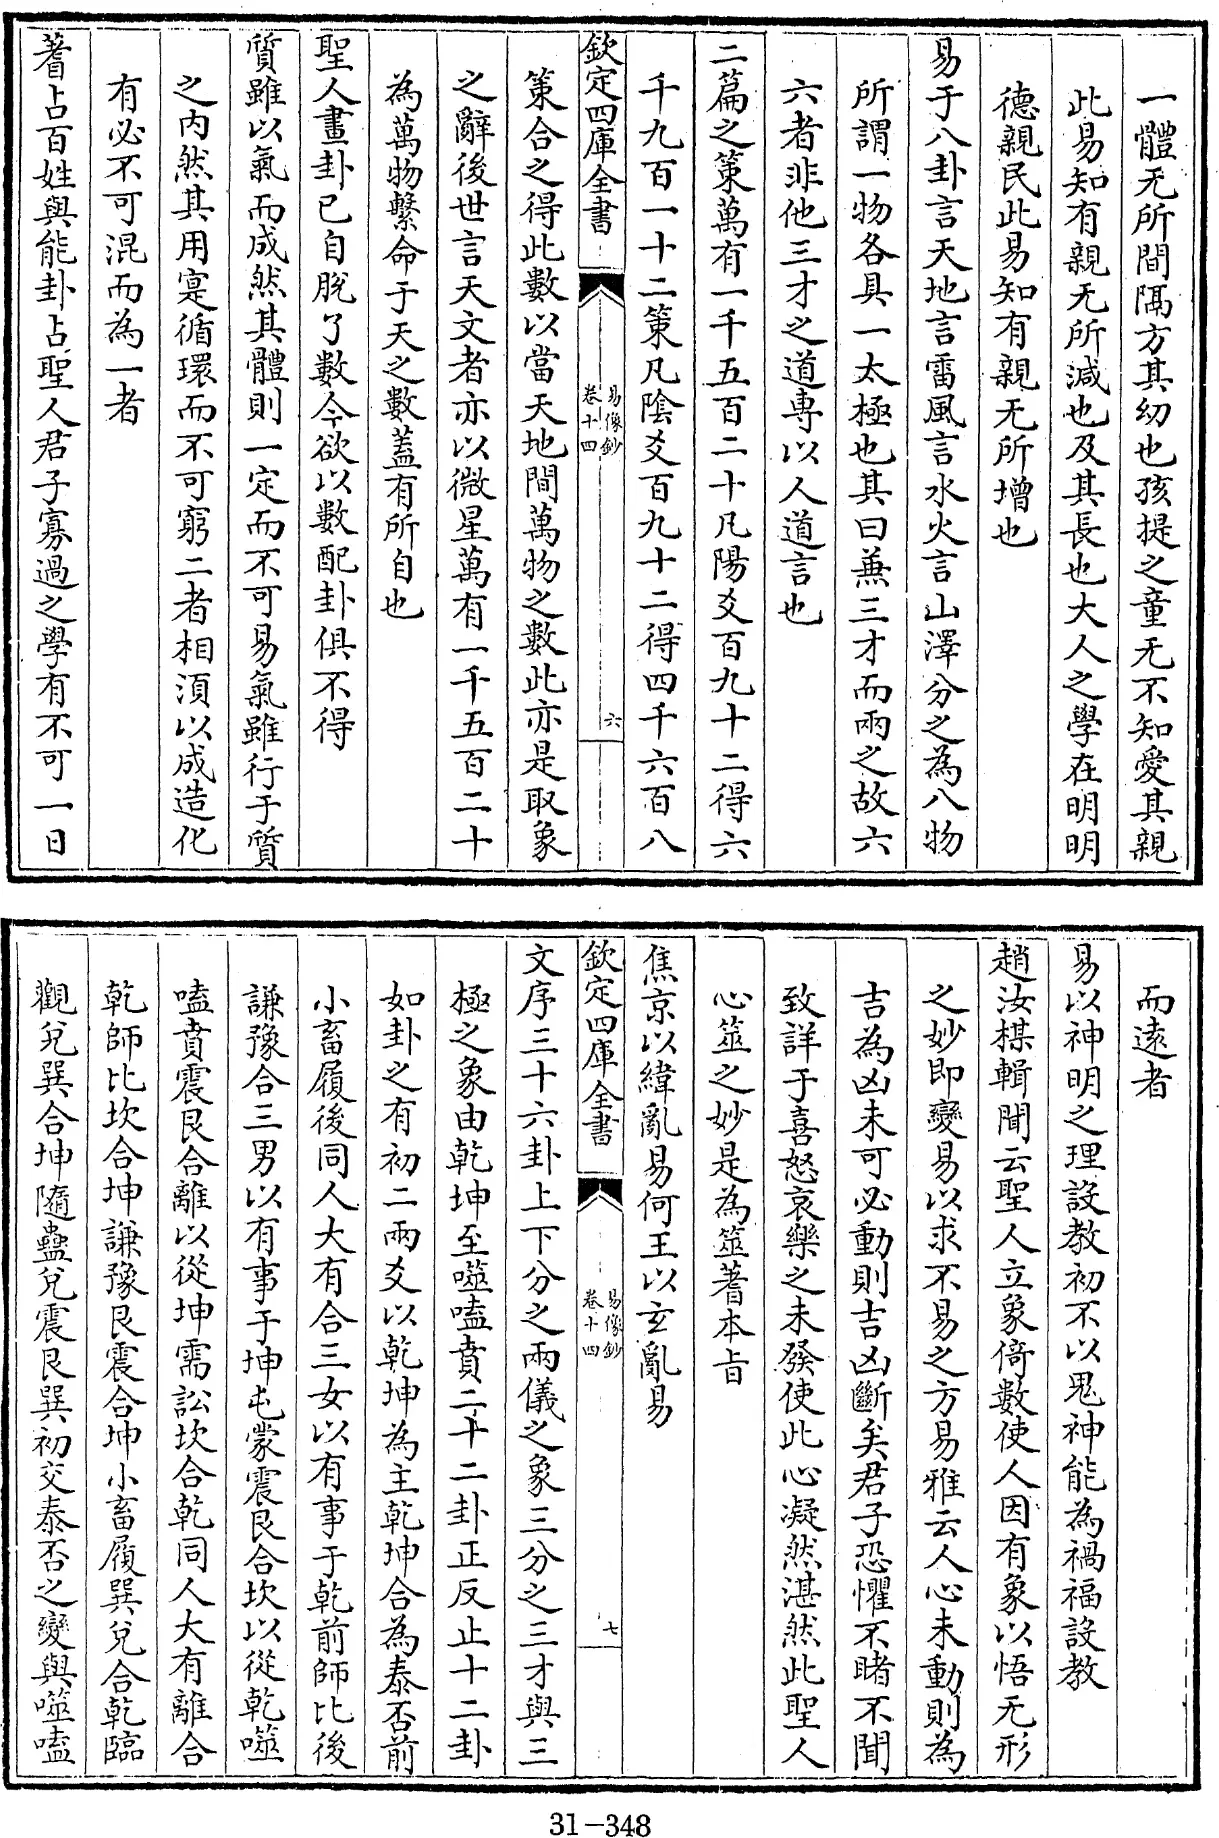 一體无所間隔方其幼也孩提之童无不知愛其親
此易知有親无所減也及其長也大人之學在明明
德親民此易知有親无所增也
易于八卦言天地言雷風言水火言山澤分之為八物
所謂一物各具一太極也其曰兼三才而兩之故六
六者非他三才之道專以人道言也
二篇之策萬有一千五百二十凡陽爻百九十二得六
千九百一十二策凡陰爻百九十二得四千六百八
欽定四庫全書
易像鈔
卷十四
六
策合之得此數以當天地間萬物之數此亦是取象
之辭後世言天文者亦以微星萬有一千五百二十
為萬物繫命于天之數蓋有所自也
聖人畫卦已自脫了數今欲以數配卦俱不得
質雖以氣而成然其體則一定而不可易氣雖行于質
之内然其用寔循環而不可窮二者相湏以成造化
有必不可混而為一者
蓍占百姓與能卦占聖人君子寡過之學有不可一日
而遠者
易以神明之理設教初不以鬼神能為禍福設教
趙汝楳輯聞云聖人立象倚數使人因有象以悟无形
之妙即變易以求不易之方易雅云人心未動則為
吉為凶未可必動則吉凶斷矣君子恐懼不睹不聞
致詳于喜怒哀樂之未發使此心凝然湛然此聖人
心筮之妙是為筮蓍本旨
焦京以緯亂易何王以玄亂易
欽定四庫全書
易像鈔
卷十四
七
文序三十六卦上下分之兩儀之象三分之三才與三
極之象由乾坤至噬嗑賁二十二卦正反止十二卦
如卦之有初二兩爻以乾坤為主乾坤合為泰否前
小畜履後同人大有合三女以有事于乾前師比後
謙豫合三男以有事于坤屯蒙震艮合坎以從乾噬
嗑賁震艮合離以從坤需訟坎合乾同人大有離合
乾師比坎合坤謙豫艮震合坤小畜履巽兌合乾臨
觀兌巽合坤隨蠱兌震艮巽初交泰否之變與噬嗑
31-348